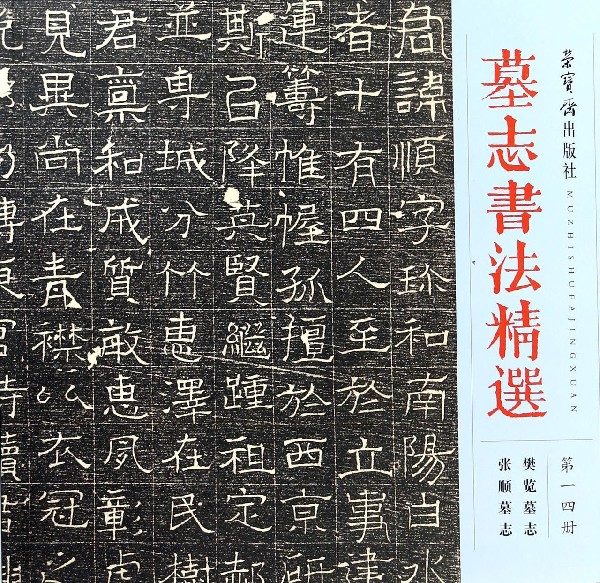 榮寶齋出版社
MUZHISHUFAJINGXUAN
墓志書法精選
第一四册
樊览墓志
张顺墓志
君諱順字珎和南陽白水
者十有四人至於立事建
運籌帷幄孤擅於西京研
斯已降英賢繼踵祖定郝
並專城分竹惠澤在民樹
君稟和成質敏惠夙彰
見異尚在青襟以衣冠